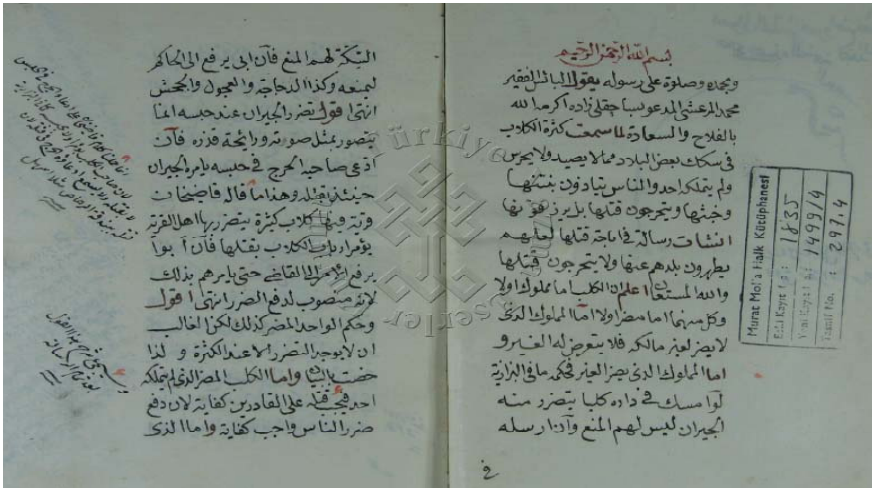 بسم الله الرحمن الرحيم
وبحمده وصلوة على رسوله يقول البائس الفقير
محمد المرعشي المدعو بساجقلي زاده اكرمه الله
بالفلاح والسعادة لما سمعت كثرة الكلاب
في سكك بعض البلاد مما لا يصيد ولا يحرس
ولم يتملكه احد والناس يتأذون بنتنها
وخبثها ويتحرجون قتلها بل يرزقونها
انشأت رسالة في اباحة قتلها لعلهم
يطهرون بلدهم عنها ولا يتحرجون قتلها
والله المستعان اعلم ان الكلب اما مملوك اولا
وكل منهما اما مضر اولا اما المملوك الذي
لا يضر لغير مالكه فلا يتعرض له الغير و
اما المملوك الذي يضر الغير فحكمه ما في البزازية
لو امسك في داره كلبا يتضرر منه
الجيران ليس لهم المنع وان ارسله
في
السكة لهم المنع فان ابى يرفع الى الحاكم
ليمنعه وكذا الدجاجة والعجول والجحش
انتهى اقول تضرر الجيران عند حبسه انما
يتصور بمثل صوته ورايحة قذره فان
ادعى صاحبه الحرج في حبسه يامره الجيران
حينئذ بقتله وهذا ما قاله قاضيخان
قرية فيها كلاب كثيرة يتضرر بها اهل القرية
يؤمر ارباب الكلاب بقتلها فان ابوا
يرفع الامر الى القاضي حتى يامرهم بذلك
لانه منصوب لدفع الضرر انتهى اقول
وحكم الواحد المضر كذلك لكن الغالب
ان لا يوجد التضرر الا عند الكثرة ولذا
خصت بالبيان واما الكلب المضر الذي لم يتملكه
احد فيجب قتله على القادرين كفاية لان دفع
ضرر الناس واجب كفاية واما الذي
Murat Molla Halk Kütüphanesi
Eski Kayıt No : 1835
Yeni Kayıt No : 1499/4
Tasnif No. : 297.4
Türkiye